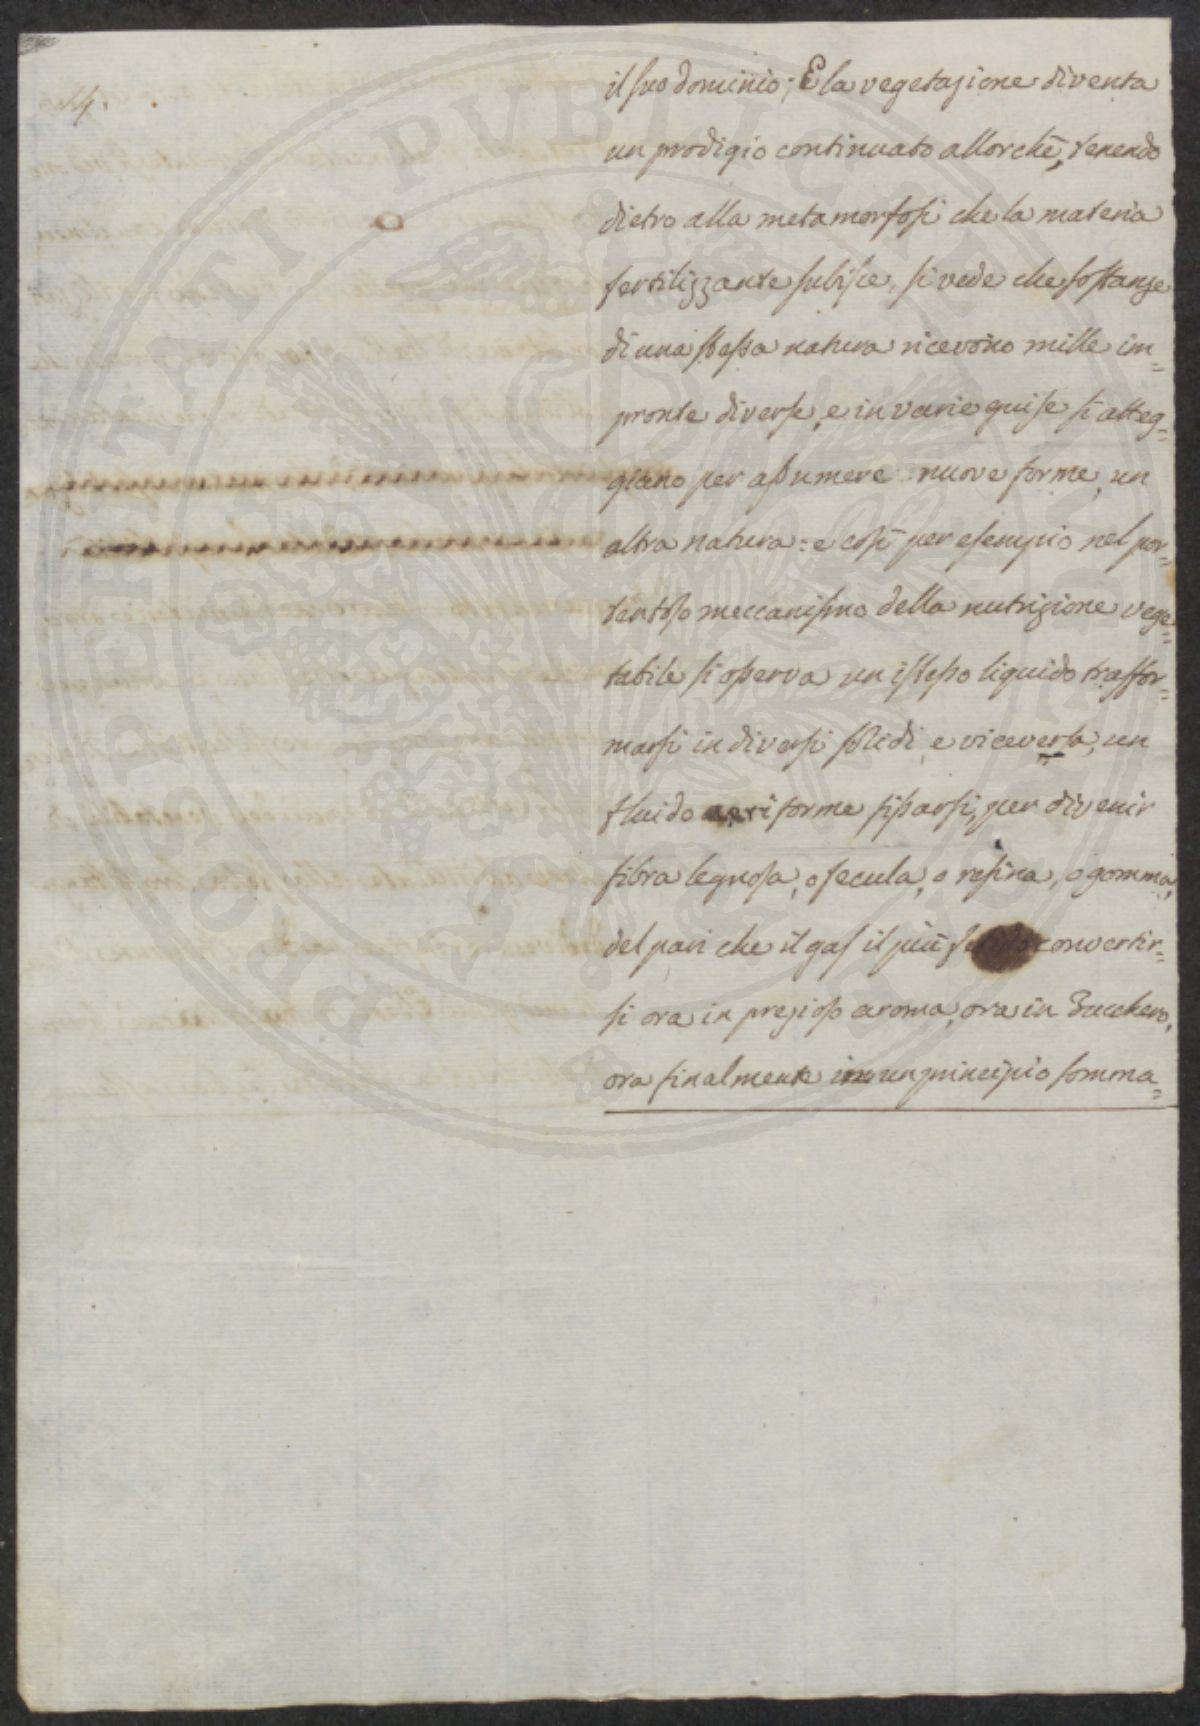 14.
il suo dominio; E la vegetazione diventa
un prodigio continuato allorchè, tenendo
dietro alla metamorfosi che la materia
fertilizzante subisce, si vede che sostanze
di una stessa natura ricevono mille im=
pronte diverse, e in varie guise si atteg=
giano per assumere nuove forme, un
altra natura: e così per esempio nel por=
tentoso meccanismo della nutrizione vege=
tabile si osserva un istesso liquido trasfor=
marsi in diversi solidi, e viceversa, un
fluido aeriforme fissarsi, per divenir
fibra legnosa, o fecula, o resina, o gomma,
del pari che il gas il più convertir=
si ora in prezioso aroma, ora in Zucchero,
ora finalmente in un principio somma=